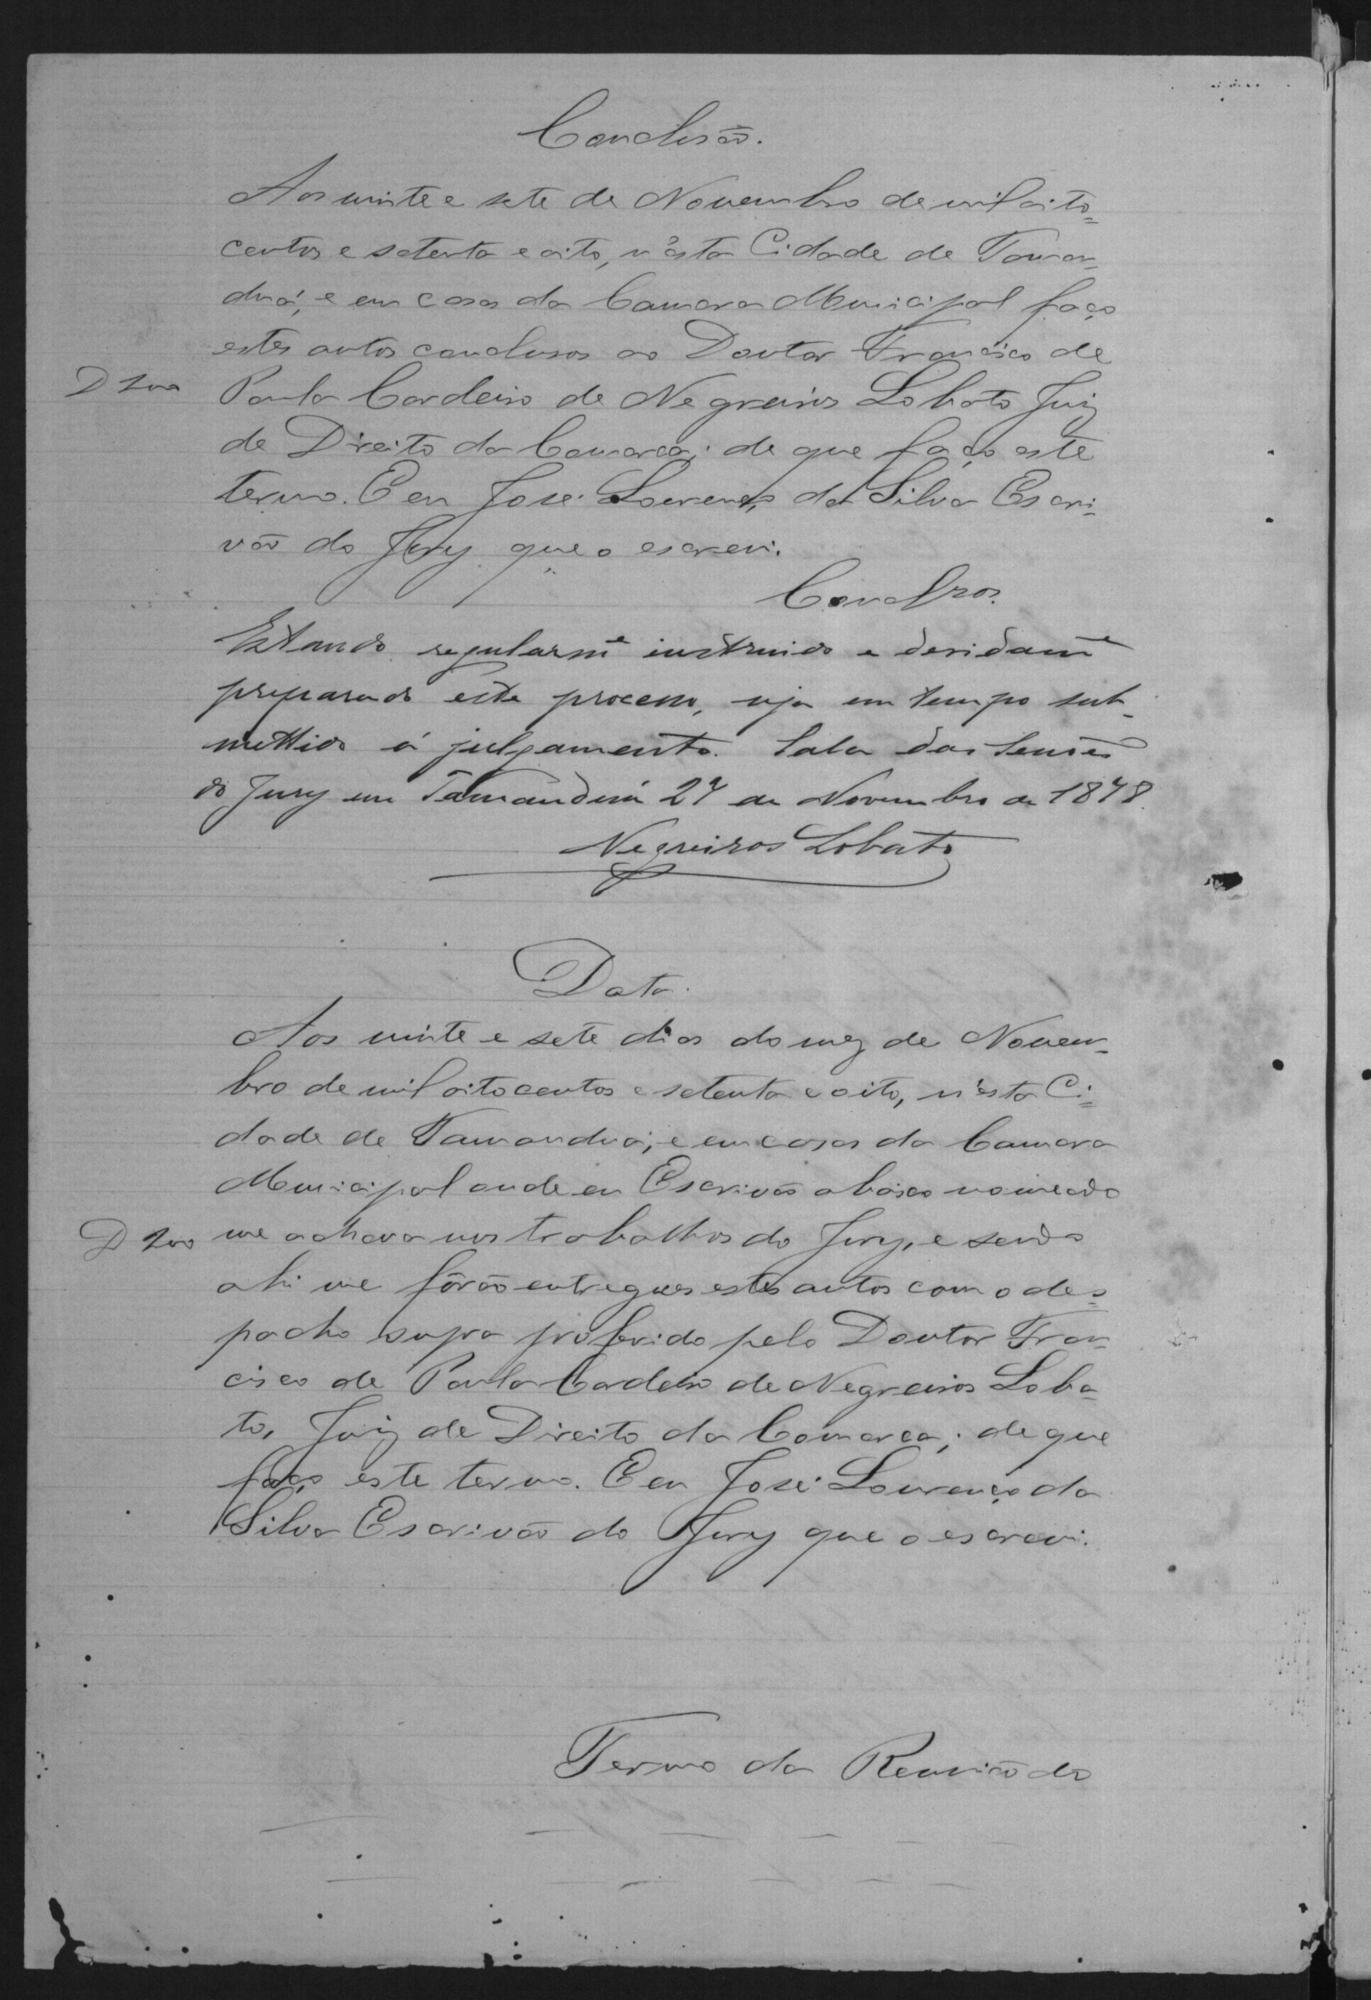 Conclusão.
Aos vinte e sete de Novembro de mil oito=
centos e setenta e oito, n'esta Cidade de Taman=
duá, e em casa da Camara Municipal faço
estes autos conclusos ao Doutor Francisco de
Paula Cordeiro de Negreiros Lobato Juiz
de Direito da Comarca; de que faço este
termo. E eu José Lourenço da Silva Escri=
vão do Jury que o escrevi.
Conclsos.
Estando regularmte instruido e devidamte
preparado este processo, seja em tempo sub-
mettido á julgamento. Sala das Sessões
do Jury em Tamanduá 27 de Novembro de 1878.
Negreiros Lobato
Data.
Aos vinte e sete dias do mez de Novem=
bro de mil oitocentos e setenta e oito, n'esta Ci=
dade de Tamanduá, e em casa da Camara
Municipal onde eu Escrivão abaixo nomeado
me achava nos trabalhos do Jury, e sendo
ahi me fôrão entregues estes autos com o des=
pacho supra proferido pelo Doutor Fran=
cisco de Paula Cordeiro de Negreiros Loba=
to, Juiz de Direito da Comarca; de que
faço este termo. E eu José Lourenço da
Silva Escrivão do Jury que o escrevi.
Termo da Reunião do